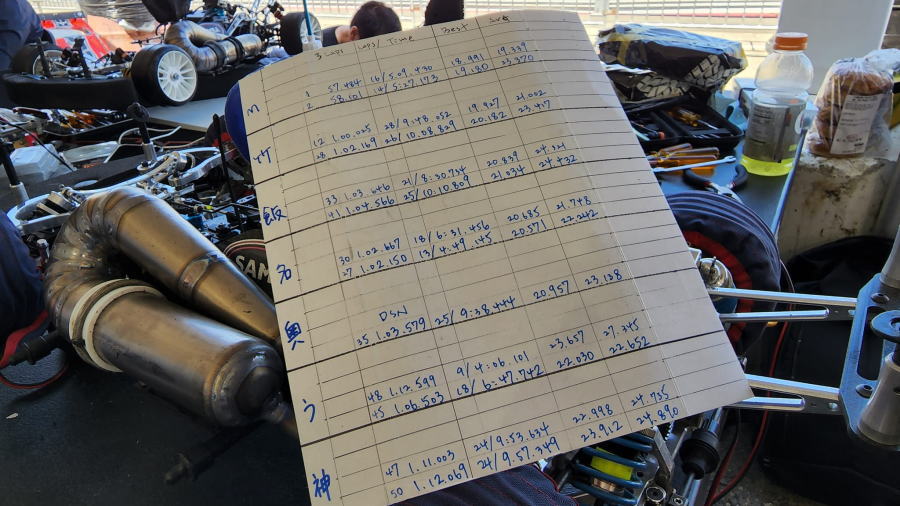 3 LAPS Laps/Time Best Ave
M
1 57.484 16/5:09.430 18.991 19.339
2 58.101 14/5:27.173 19.180 23.370
竹
12 1.00.025 28/9:48.052 19.927 21.002
28 1.02.169 26/10.08.829 20.182 23.417
飯
33 1.03.646 21/8:30.734 20.839 24.321
41 1.04.566 25/10.10.809 21.034 24.432
30 1.02.607 18/6:31.456 20.685 21.748
27 1.02.150 13/4.49.145 20.571 22.242
奥
DSN
35 1.03.579 25/9:38.444 20.957 23.138
う
48 1.12.599 9/4:06.101 23.657 27.345
45 1.06.503 18/6:47.742 22.030 22.652
神
47 1.11.003 24/9:53.634 22.998 24.735
50 1.12.069 24/9.57.349 23.912 24.890
SAM